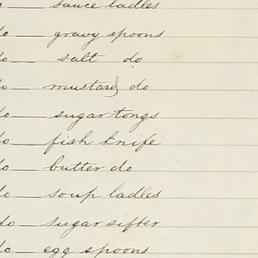 do — sauce ladles
do — gravy spoons
do — salt do
do — mustard do
do — sugar tongs
do — fish knife
do — butter do
do — soup ladles
do — sugar sifter
do — egg spoons